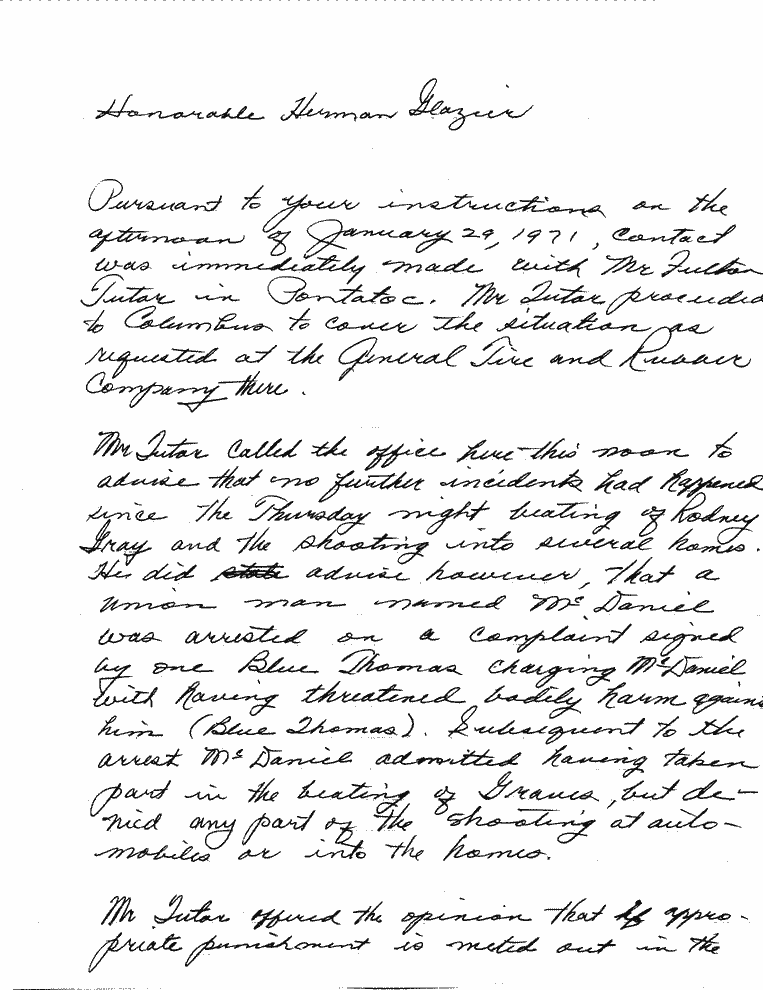 Honorable Herman Glazier
Pursuant to your instructions on the
afternoon of January 29, 1971, contact
was immediately made with Mr Fulton
Tutor in Pontatoc. Mr Tutor proceeded
to Columbus to cover the situation as
requested at the General Tire and Rubber
Company there.
Mr Tutor called the office here this noon to
advise that no further incidents had happened
since the Thursday night beating of Rodney
Gray and the shooting into several homes.
He did state advise however, that a
union man named Mc Daniel
was arrested on a complaint signed
by one Blue Thomas charging McDaniel
with having threatened bodily harm agains
him (Blue Thomas). Subsequent to the
arrest Mc Daniel admitted having taken
part in the beating of Graves, but de-
nied any part of the shooting at auto-
mobiles or into the homes.
Mr Tutor offered the opinion that if appro-
priate punishment is meted out in the